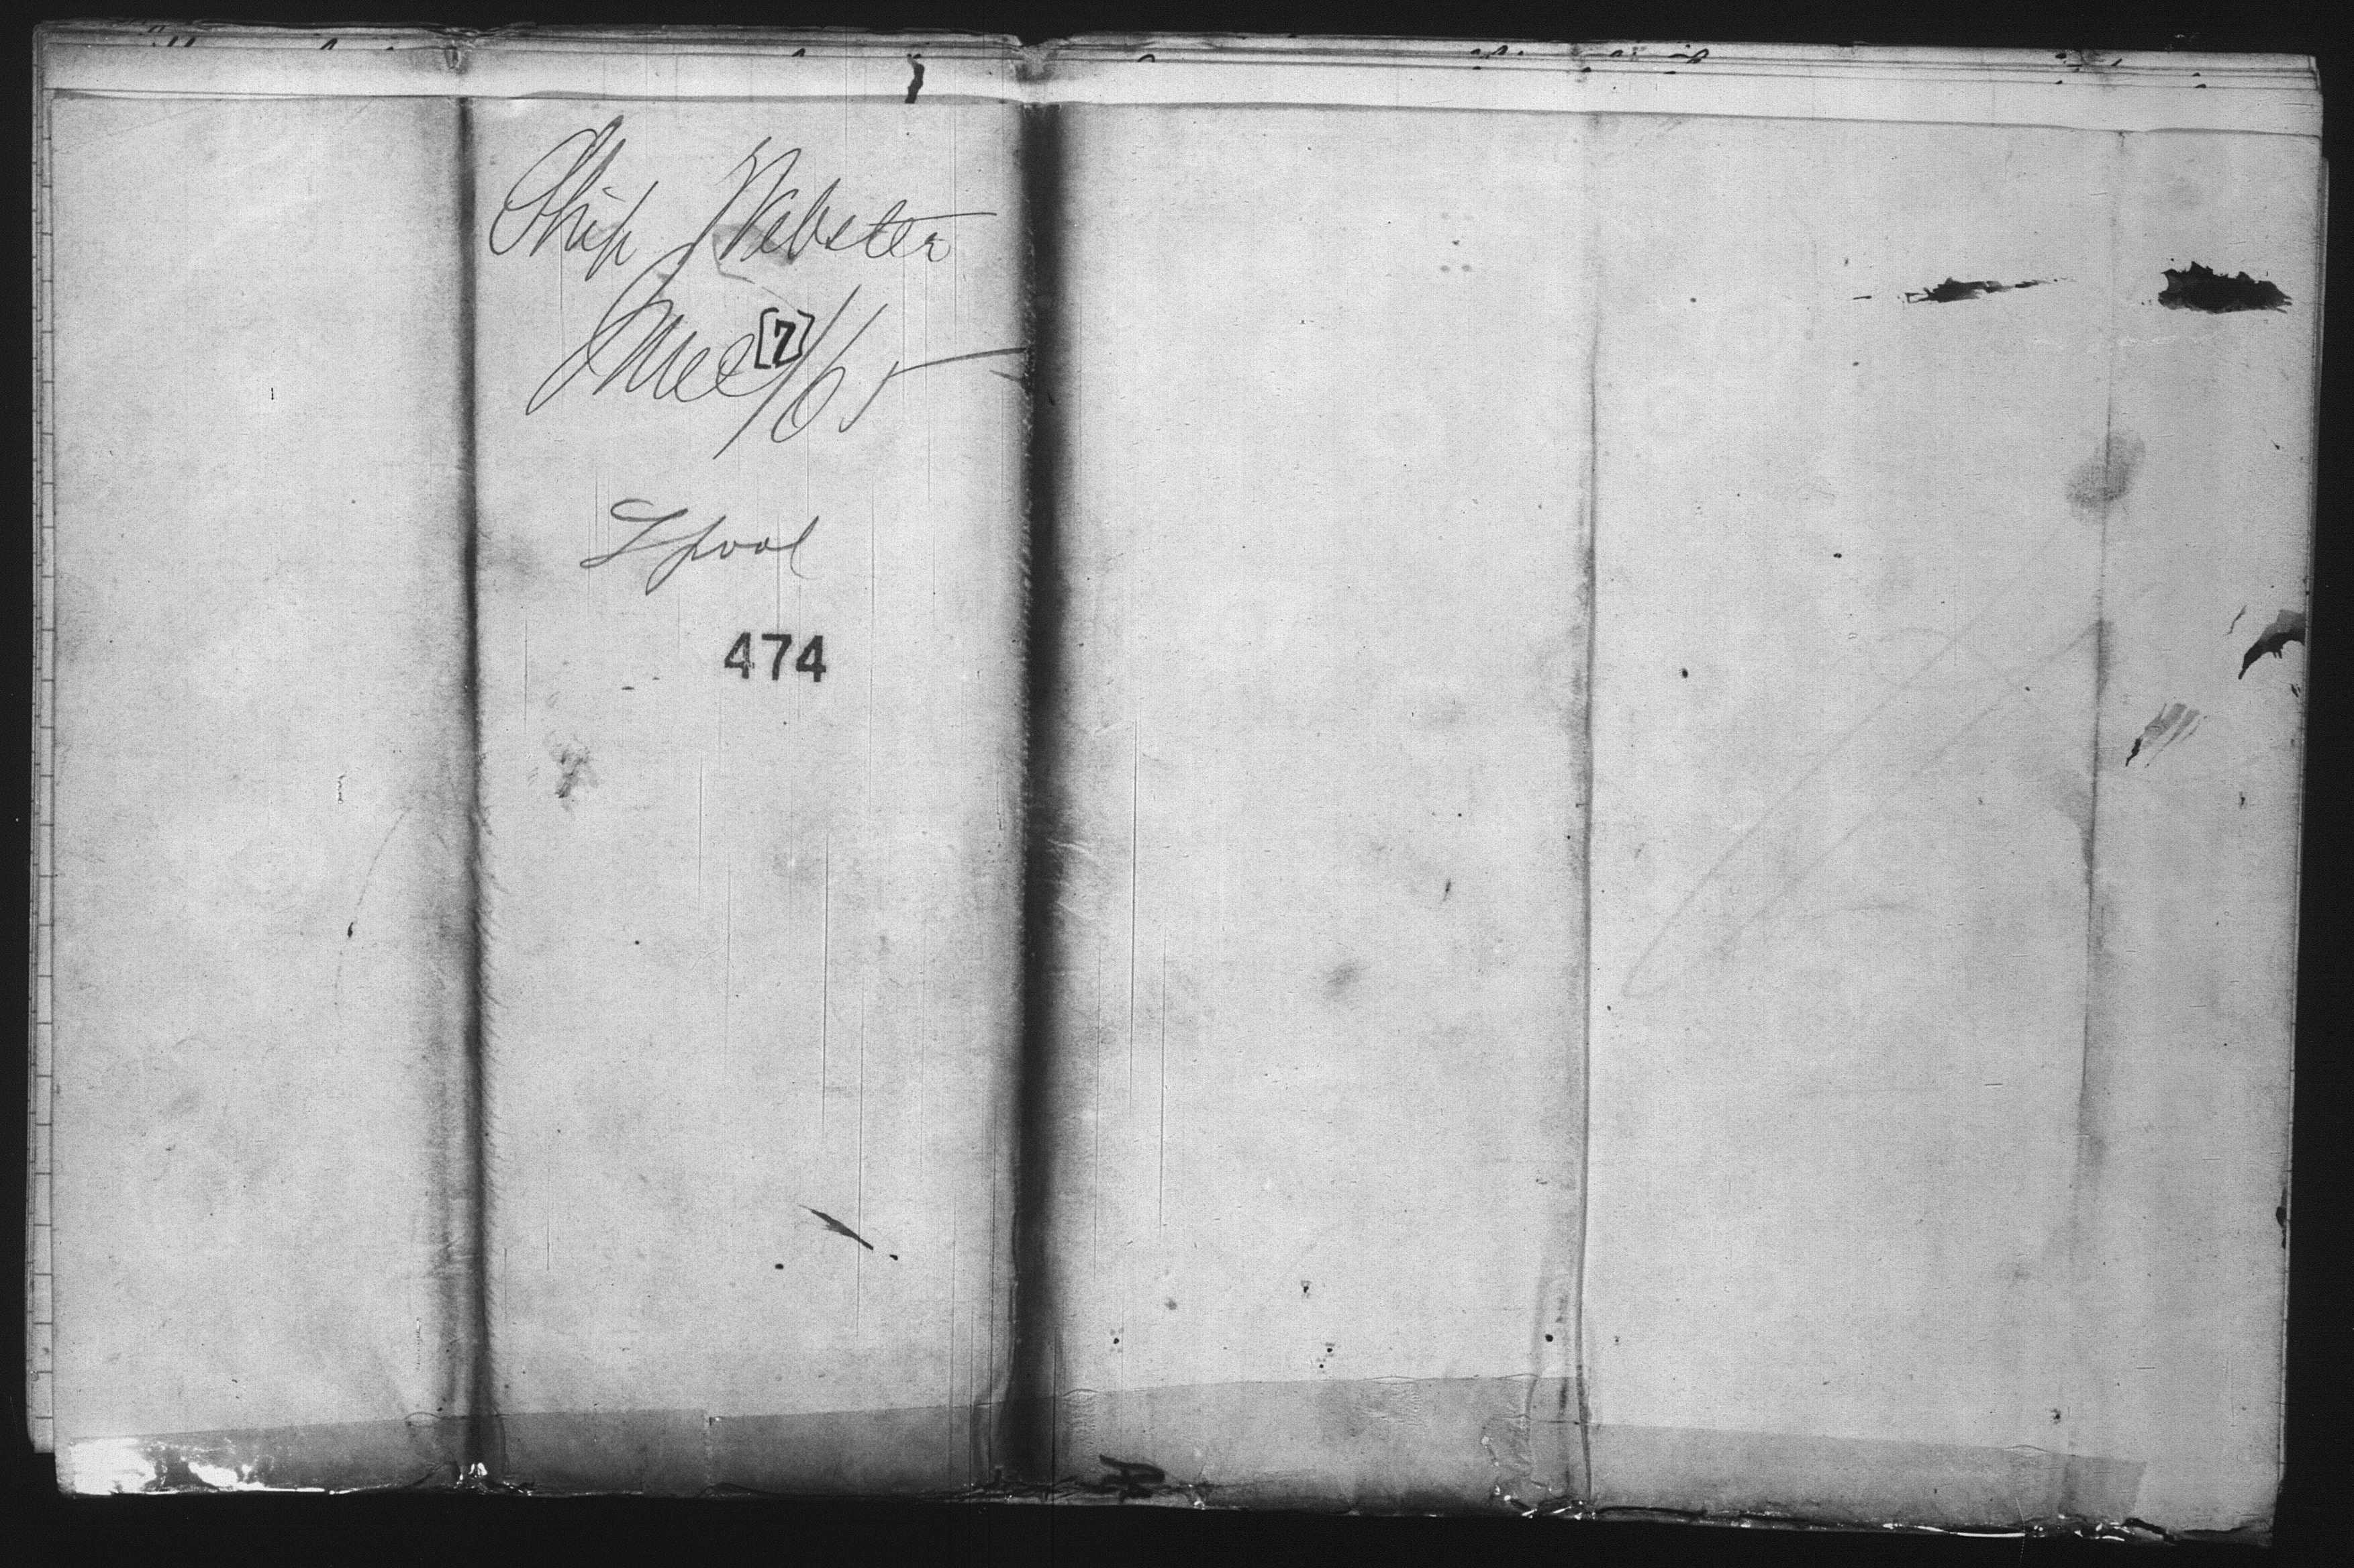 Ship Webster
June [7]/65
L pool
474